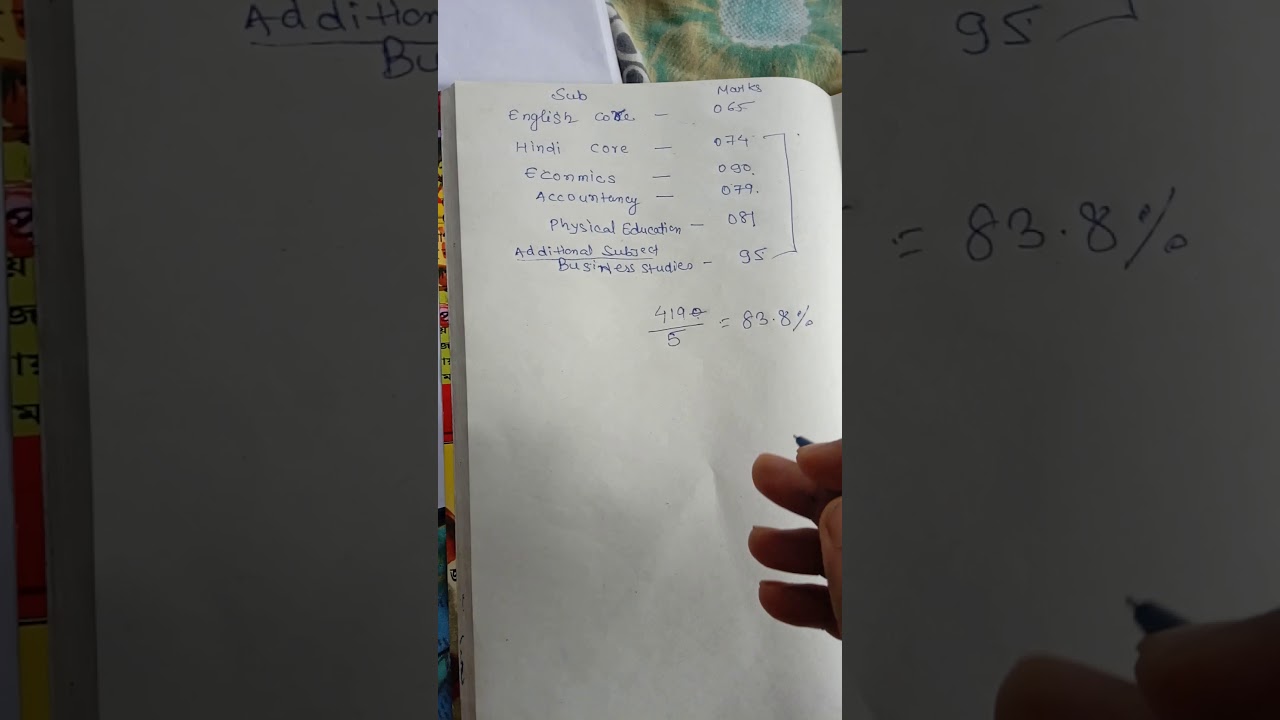 Sub Marks
English core - 065
Hindi core - 074
Econmics - 090.
Accountancy - 079.
Physical Education - 081
Additional Subject
Business studies - 95
4190
5
= 83.8%
Additional
Bu
95
= 83.8%